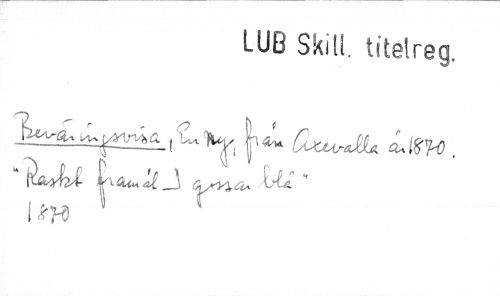 LUB Skill. titelreg.
Beväringsvisa, En ny, från Axevalla år 1870.
"Raskt framåt – I gossar blå"
1870